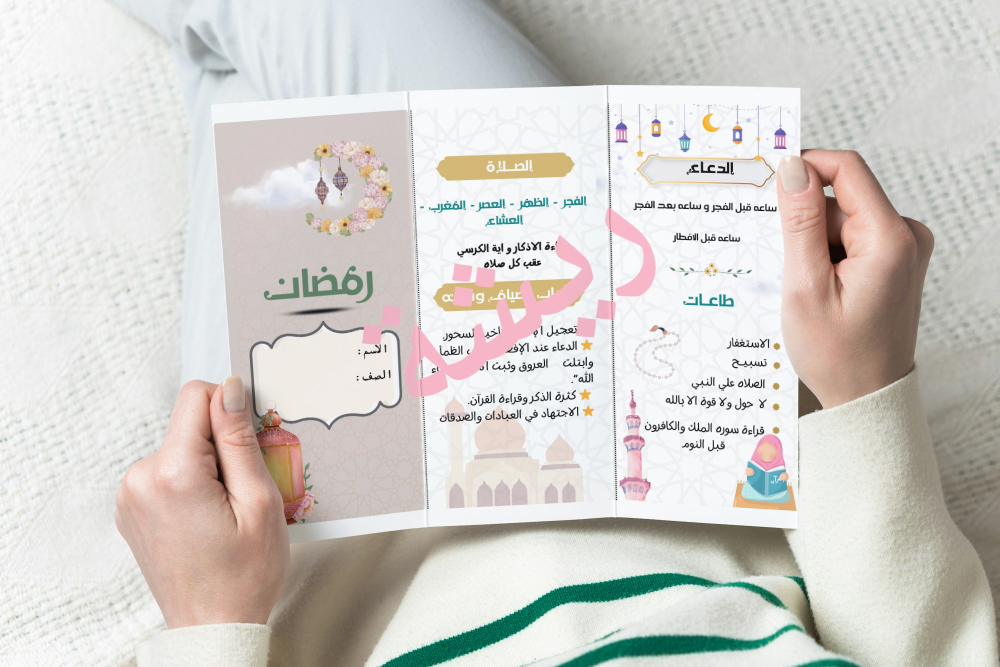 الدعاء
ساعه قبل الفجر و ساعه بعد الفجر
ساعه قبل الافطار
طاعات
الاستغفار
تسبيح
الصلاه علي النبي
لا حول ولا قوة الا بالله
قراءة سوره الملك والكافرون
قبل النوم
الصلاة
الفجر - الظهر - العصر - المغرب -
العشاء
الاذكار و اية الكرسي
عقب كل صلاه
تعجيل السحور.
الدعاء عند الظمأ
وابتلت العروق وثبت
الله".
كثرة الذكر وقراءة القرآن.
الاجتهاد في العبادات والصدقات
رمضان
الاسم :
الصف :
ريشة